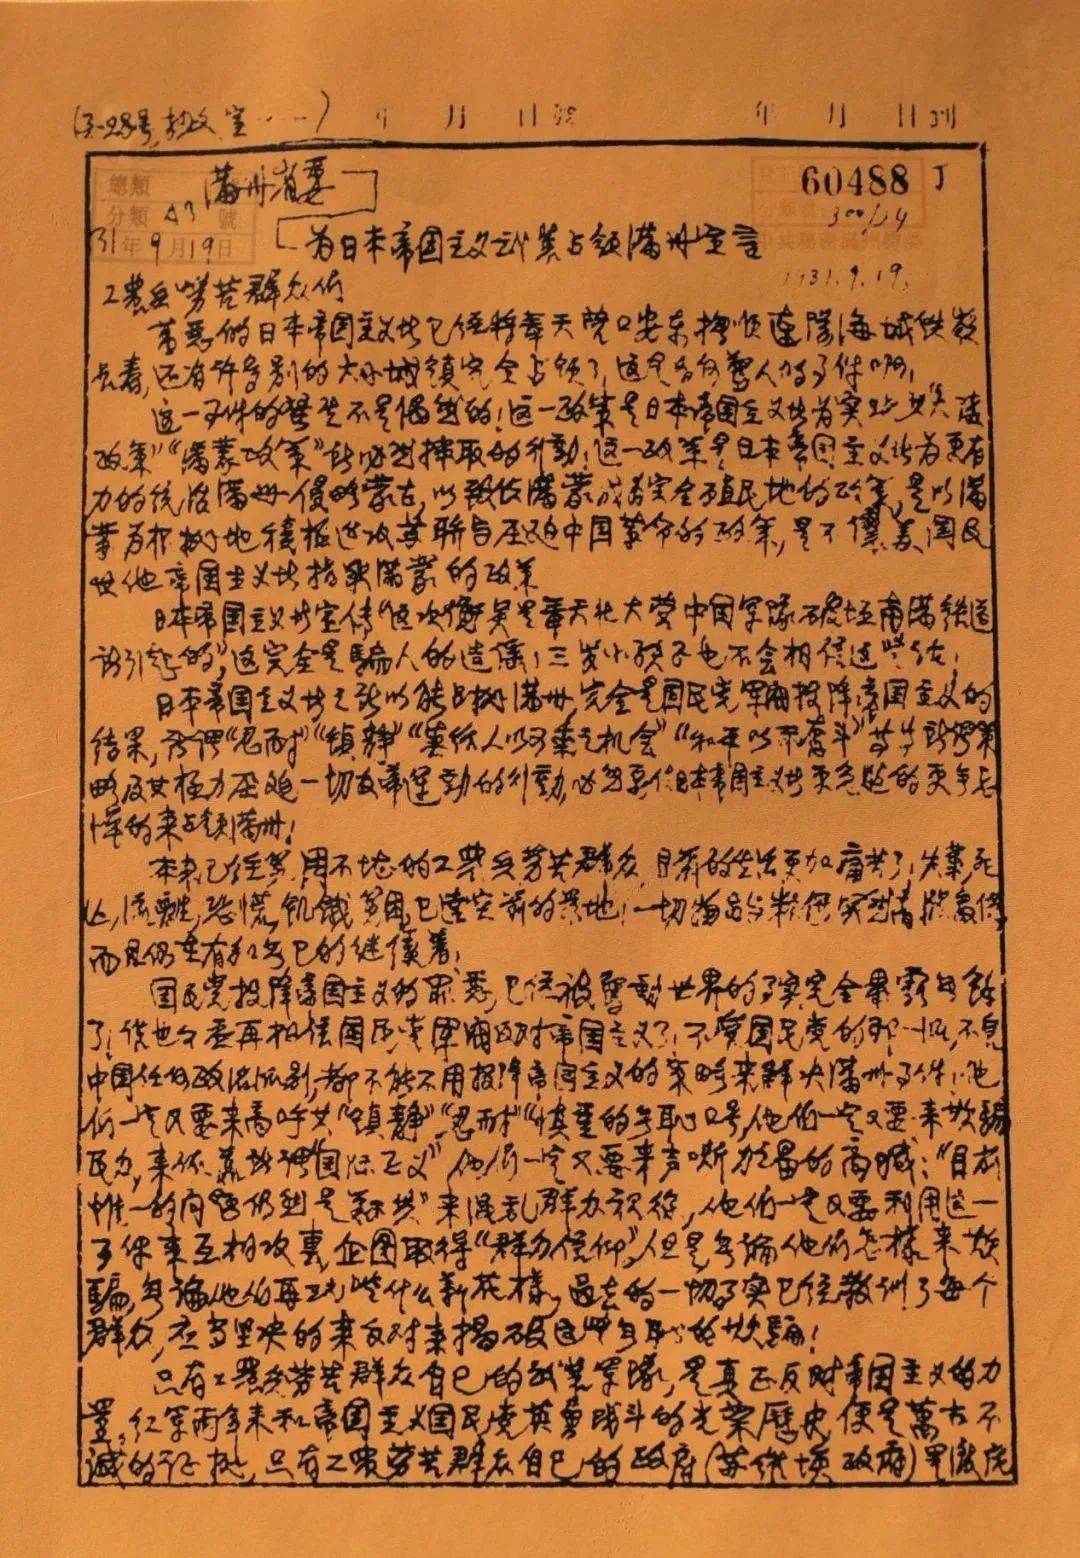 (3-28号,
年 月 日
年 月 日到
總類
满州省委
60488 丁
分類 A3 號
300/24
31年9月19日
为日本帝国主义武装占领满州宣言
1931.9.19.
工農兵劳苦群众们
万恶的日本帝国主义者已经将奉天营口安东撫順遼陽海城铁岭
长春,还有许多别的大小城鎮完全占领了,这是多么驚人的事件啊!
这一事件的發生不是偶然的!这一政策是日本帝国主义者为实现
政策”“满蒙政策”所必然採取的行動!这一政策是日本帝国主义者为更有
力的统治满州侵略蒙古,以致使满蒙成为完全殖民地的政策,是以满
蒙为根据地積極進攻苏联与压迫中国革命的政策,是
其他帝国主义者指染满蒙的政策
日本帝国主义者宣传“这次衝突是奉天北大营中国军隊破坏南满铁道
所引起的”,这完全是騙人的造谣,三岁小孩子也不会相信这些话!
日本帝国主义者之所以能占据满州,完全是国民党軍閥投降帝国主义的
结果,所谓“忍耐”“镇静”“莫给人以可乘之机会”“和平以奋斗”等等
略及其極力压迫一切反帝運動的行動,必然要使日本帝国主义者更
惮的来占领满州!
本来已经 的工農兵劳苦群众,目前的生活更加痛苦了!失業死
亡,流離,恐慌,飢餓 已達空前的 地!一切物品
而且仍在有加无已的继續着!
国民党投降帝国主义的罪恶,已经被驚動世界的事实完全暴露无餘
了!谁也不要再相信国民党軍閥反对帝国主义了!不管国民党的那一派,不管
中国任何政治派别,都不能不用投降帝国主义的策略来解决满州事件!他
们一定又要来高呼其“镇静”“忍耐”“慎重的无耻口号,他们一定又要来欺騙
民力,来依靠所谓“国际正义”他们一定又要来声嘶力竭的高喊:“目前
惟一的问题仍然是剿共”来混乱群众视線,他们一定又要利用这一
事件来互相攻裏,企图取得“群众信仰”,但是无論他们怎樣来欺
騙,无論他们再 些什么新花樣,过去的一切事实已经教训了每个
群众,应当坚决的来反对来揭破这些无耻的欺騙!
只有工農兵劳苦群众自己的武装军隊,是真正反对帝国主义的力
量,红军两年来和帝国主义国民党英勇战斗的光荣歷史便是萬古不
滅的证据,只有工農劳苦群众自己的政府(苏维埃政府)是澈底